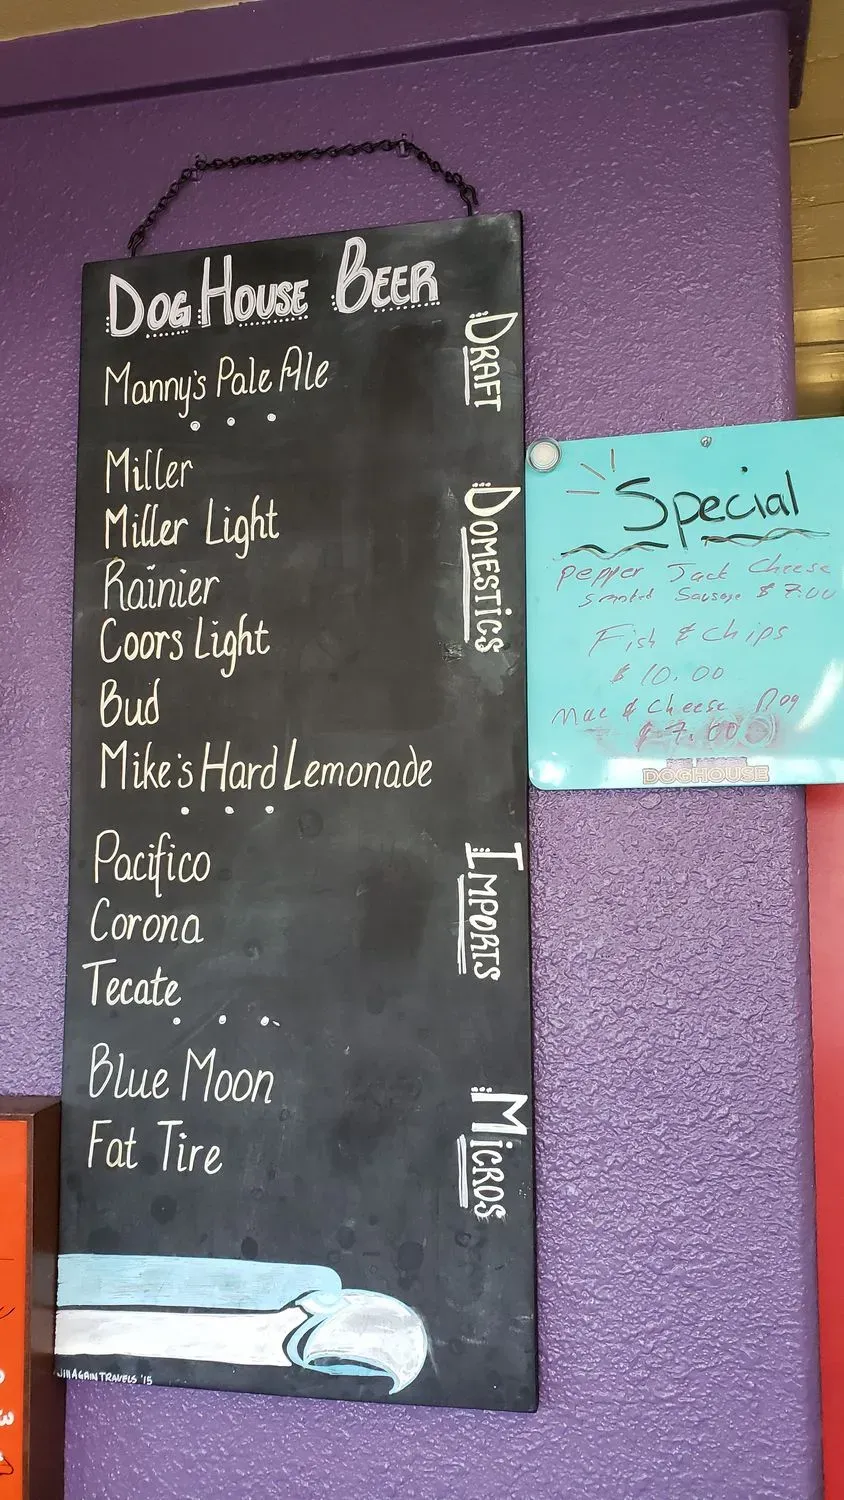 Dog House Beer
Draft
Manny's Pale Ale
Domestics
Miller
Miller Light
Rainier
Coors Light
Bud
Mike's Hard Lemonade
Imports
Pacifico
Corona
Tecate
Micros
Blue Moon
Fat Tire
JillAgainTravels '15
Special
Pepper Jack Cheese
Smoked Sausage $7.00
Fish & Chips
$10.00
Mac & Cheese Dog
$7.00
DOGHOUSE